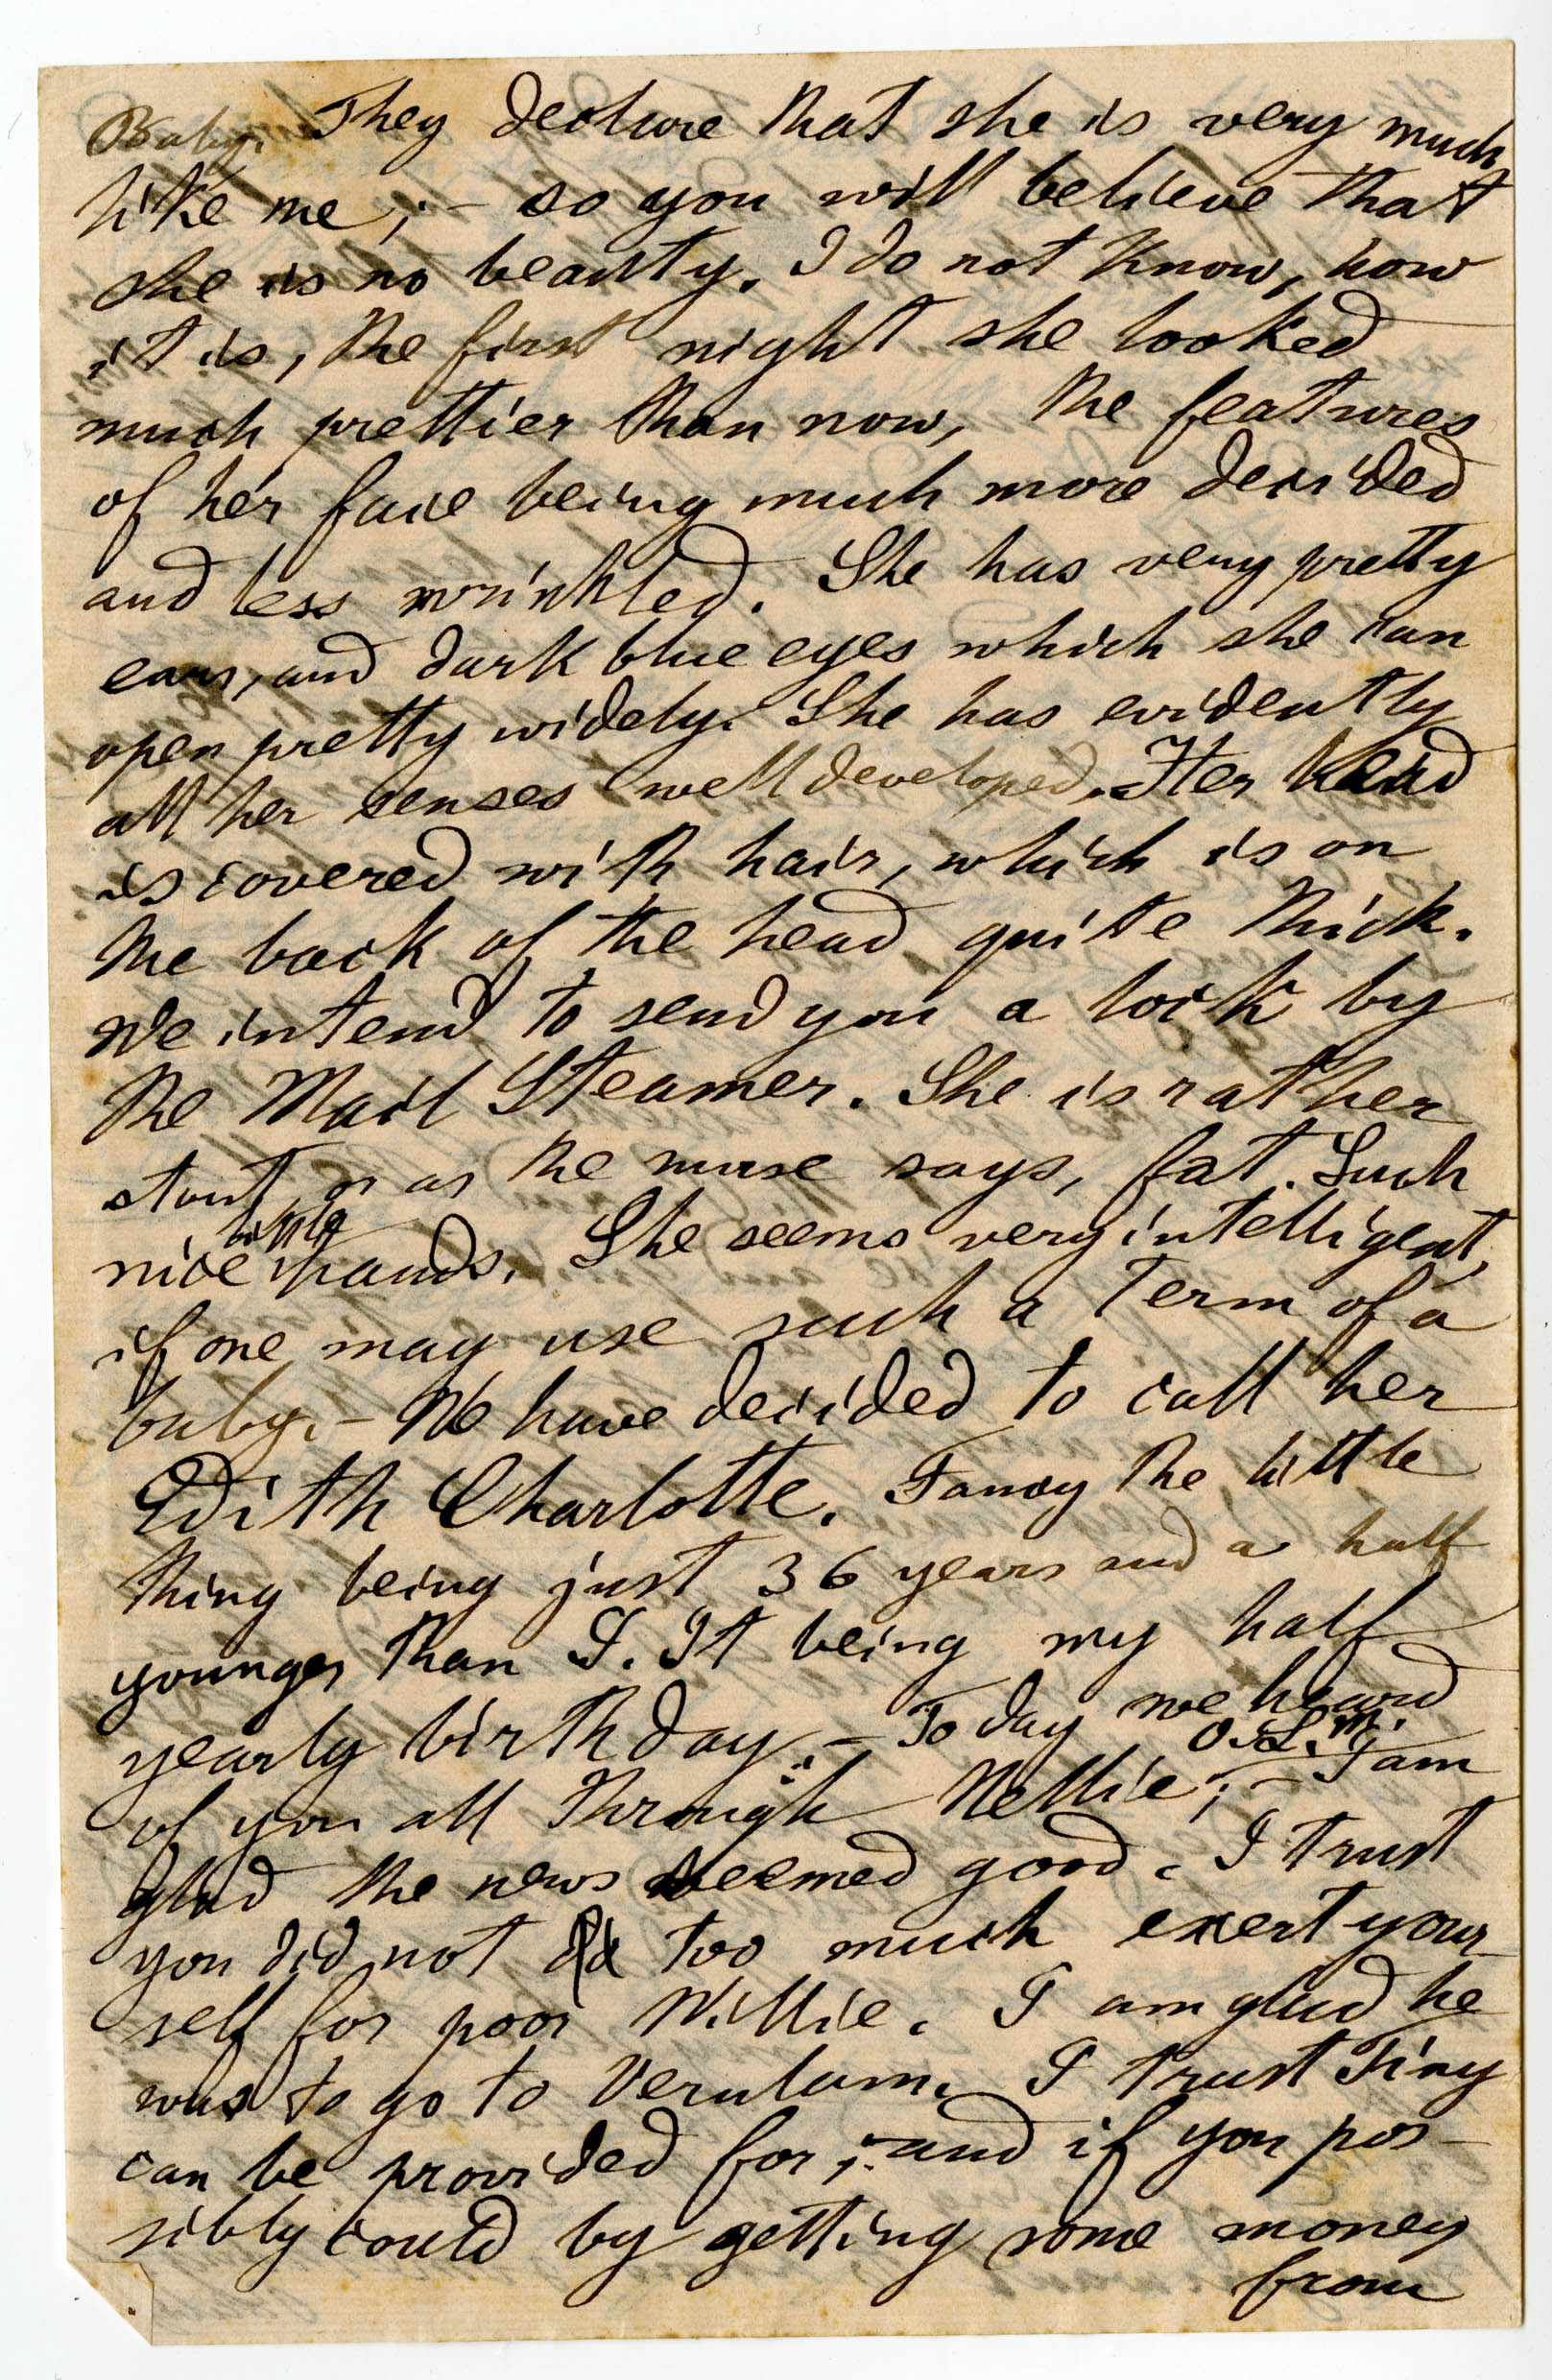 Baby. They declare that she is very much
like me; – so you will believe that
she is no beauty. I do not know, how
it is, the first night she looked
much prettier than now, the features
of her face being much more decided
and less wrinkled. She has very pretty
ears, and dark blue eyes which she can
open pretty widely. She has evidently
all her senses well developed. Her head
is covered with hair, which is on
the back of the head quite thick.
We intend to send you a lock by
the Mail Steamer. She is rather
stout, or as the nurse says, fat. Such
nice little hands. She seems very intelligent,
if one may use such a term of a
baby. – We have decided to call her
Edith Charlotte. Fancy the little
thing being just 36 years and a half
younger than I. It being my half
yearly birthday. – To day we heard
of you all through Nellie; – I am
glad the news seemed good. I trust
you did not too much exert your-
self for poor Willie. I am glad he
was to go to Verulam. I trust Tiny
can be provided for; – and if you pos-
sibly could by getting some money
from